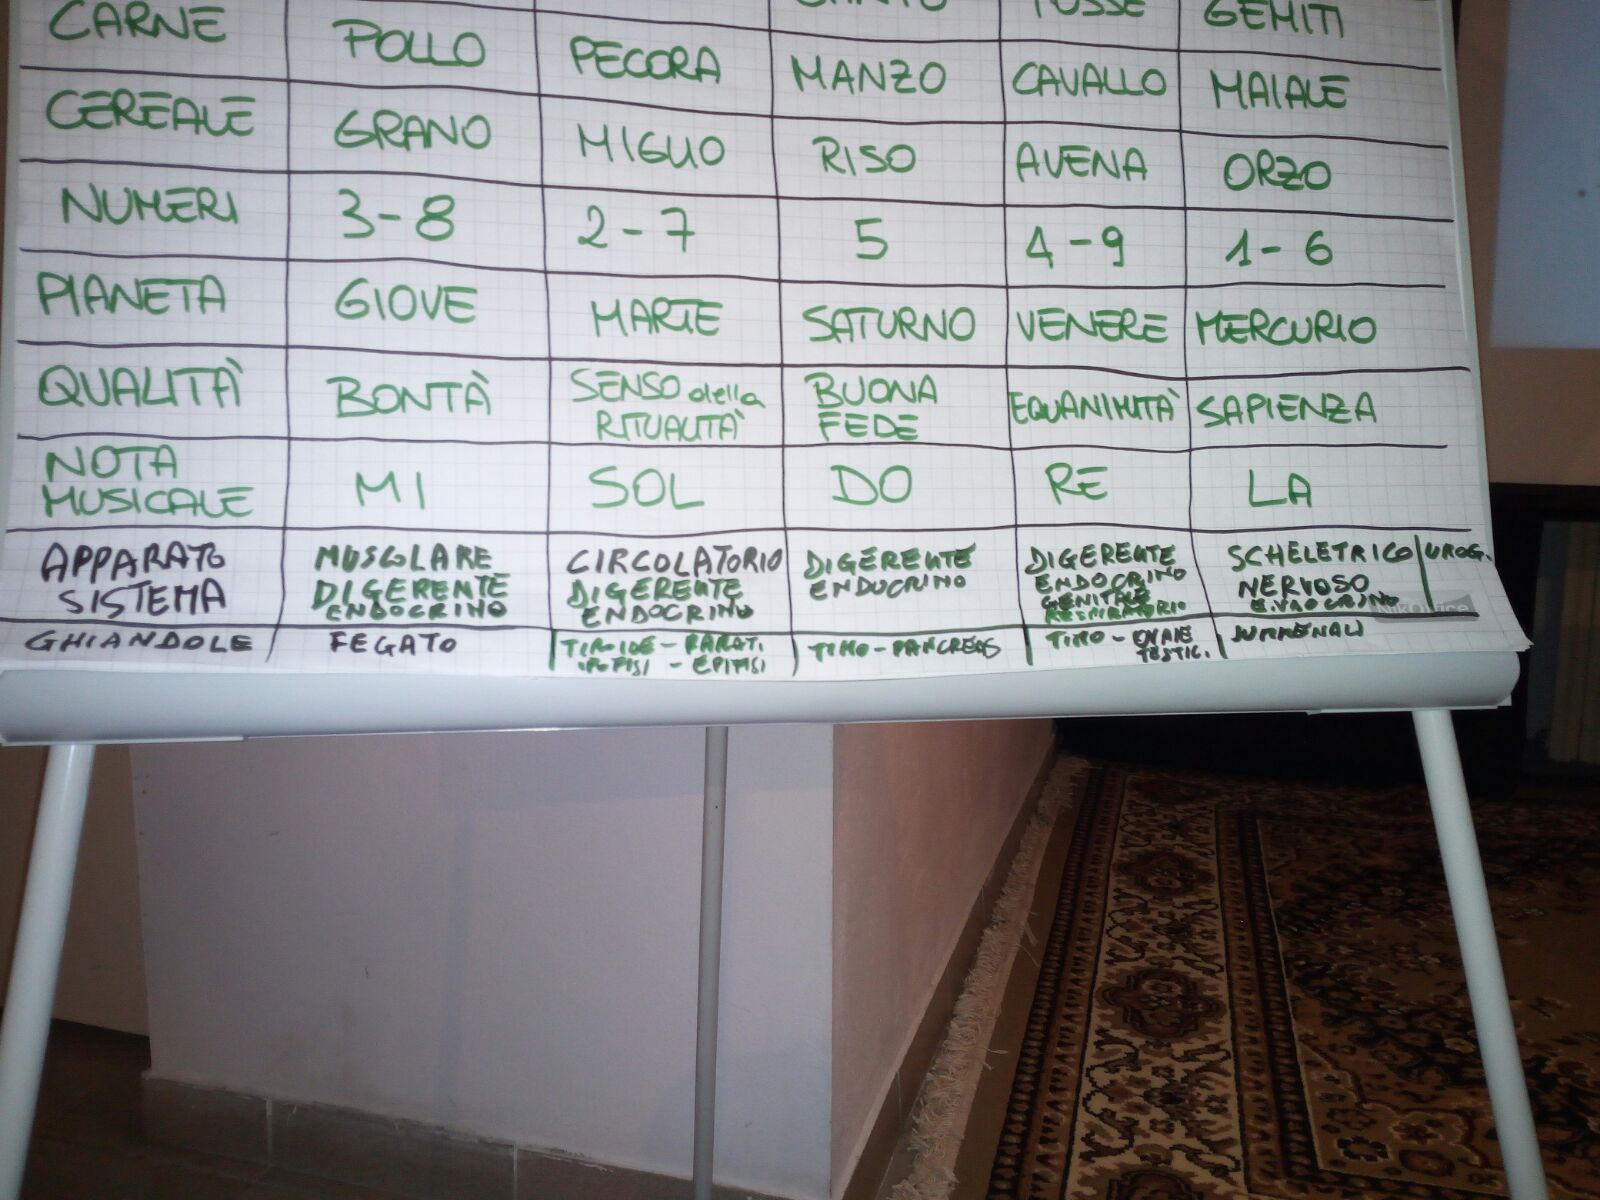 TOSSE GEMITI
CARNE POLLO PECORA MANZO CAVALLO MAIALE
CEREALE GRANO MIGLIO RISO AVENA ORZO
NUMERI 3-8 2-7 5 4-9 1-6
PIANETA GIOVE MARTE SATURNO VENERE MERCURIO
QUALITÀ BONTÀ SENSO della RITUALITÀ BUONA FEDE EQUANIMITÀ SAPIENZA
NOTA MUSICALE MI SOL DO RE LA
APPARATO MUSCOLARE CIRCOLATORIO DIGERENTE DIGERENTE SCHELETRICO UROG.
SISTEMA DIGERENTE DIGERENTE ENDOCRINO ENDOCRINO NERVOSO
ENDOCRINO ENDOCRINO GENITALE ENDOCRINO
RESPIRATORIO
GHIANDOLE FEGATO TIROIDE - PARAT. TIMO - PANCREAS TIMO - OVAIE SURRENALI
IPOFISI - EPIFISI TESTIC.